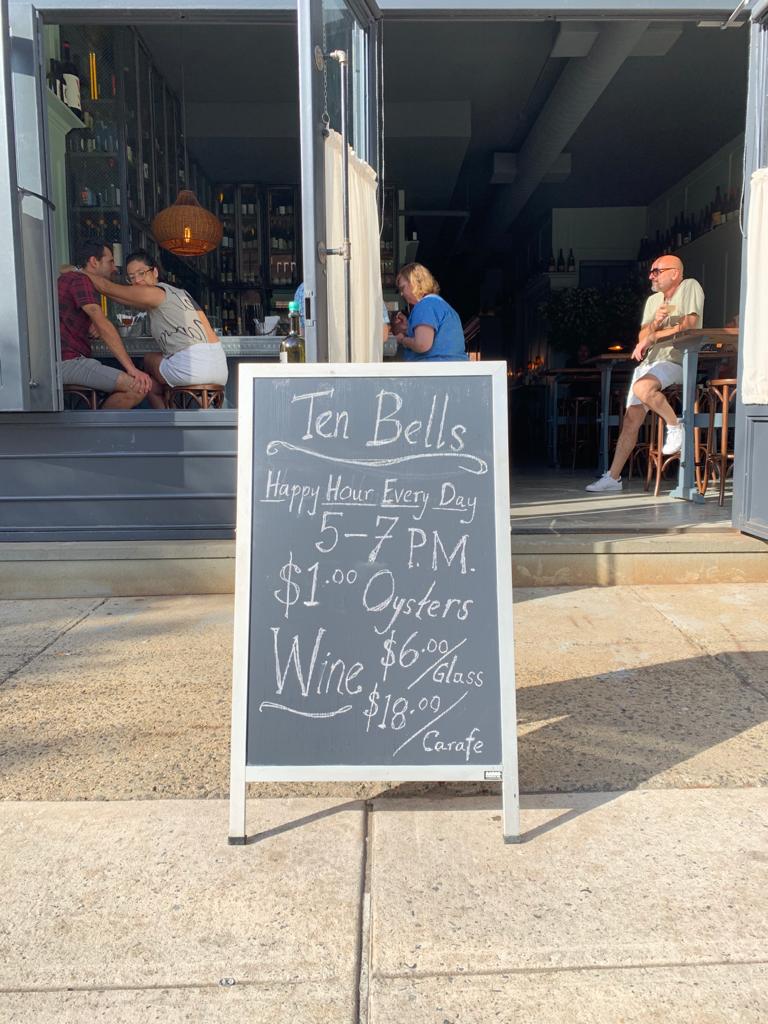 Ten Bells
Happy Hour Every Day
5-7 P.M.
$1.00 Oysters
Wine $6.00/Glass
$18.00/Carafe